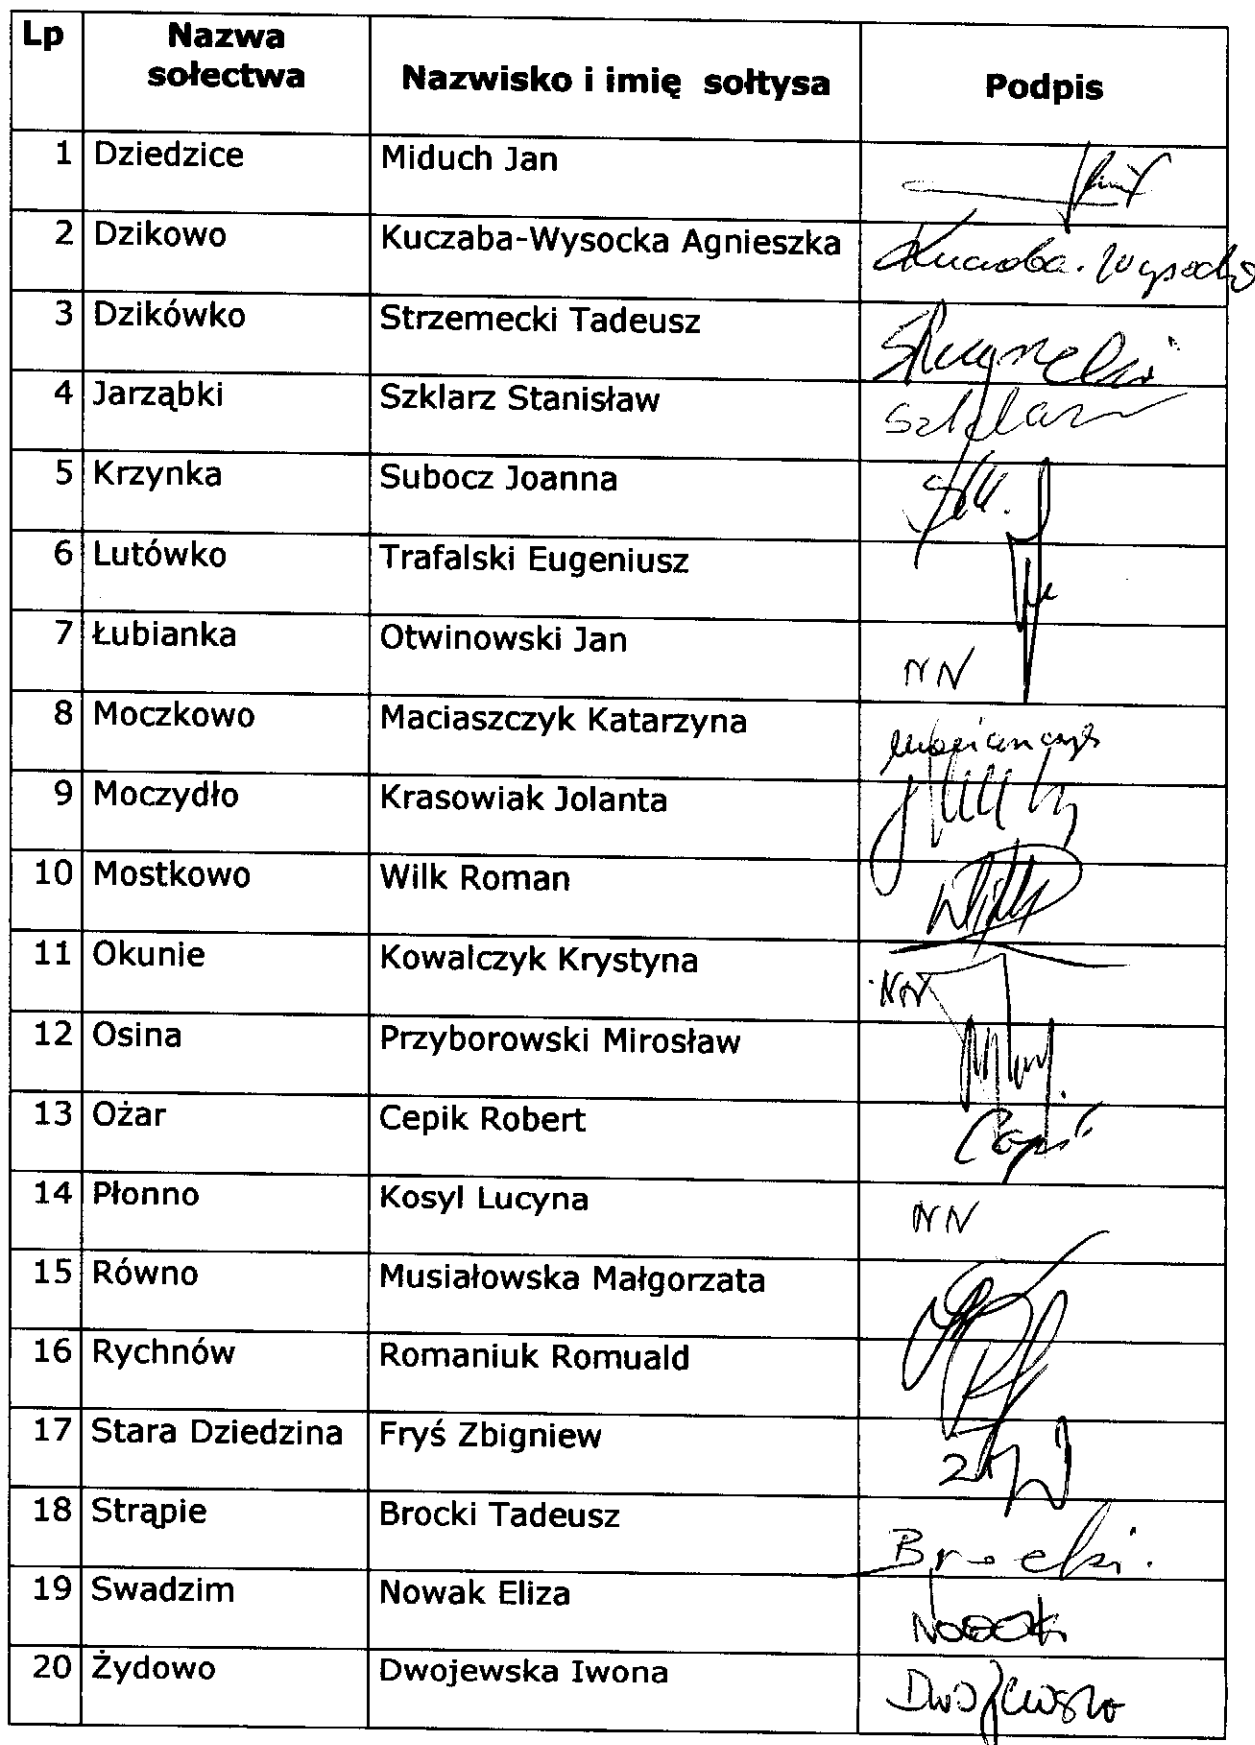 Lp Nazwa sołectwa Nazwisko i imię sołtysa Podpis
1 Dziedzice Miduch Jan
2 Dzikowo Kuczaba-Wysocka Agnieszka
3 Dzikówko Strzemecki Tadeusz
4 Jarząbki Szklarz Stanisław Szklarz
5 Krzynka Subocz Joanna
6 Lutówko Trafalski Eugeniusz
7 Łubianka Otwinowski Jan NN
8 Moczkowo Maciaszczyk Katarzyna
9 Moczydło Krasowiak Jolanta
10 Mostkowo Wilk Roman
11 Okunie Kowalczyk Krystyna NN
12 Osina Przyborowski Mirosław
13 Ożar Cepik Robert
14 Płonno Kosyl Lucyna NN
15 Równo Musiałowska Małgorzata
16 Rychnów Romaniuk Romuald
17 Stara Dziedzina Fryś Zbigniew
18 Strąpie Brocki Tadeusz Brocki
19 Swadzim Nowak Eliza Nowak
20 Żydowo Dwojewska Iwona Dwojewska